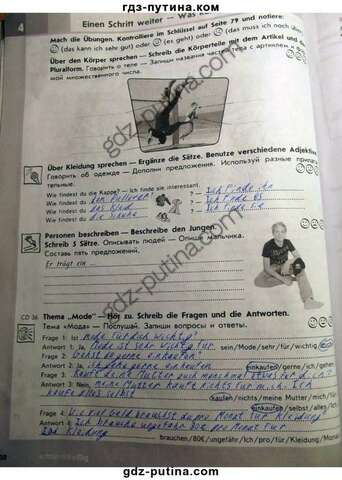 гдз-путина.com
4
Einen Schritt weiter – Was
Mach die Übungen. Kontrolliere im Schlüssel auf Seite 79 und notiere:
(das kann ich sehr gut) oder (es geht) oder (das muss ich noch
Über den Körper sprechen – Schreib die Körperteile mit dem Artikel und
Pluralform. Говорить о теле — Запиши названия частей тела с артиклем и
мой множественного числа.
Über Kleidung sprechen – Ergänze die Sätze. Benutze verschiedene Adjektive
Говорить об одежде — Дополни предложения. Используй разные прилага-
тельные.
Wie findest du die Kappe? — Ich finde sie interessant.
Wie findest du den Pullover? – Ich finde ihn
Wie findest du das Kleid – Ich finde es
Wie findest du die Schuhe – Ich finde sie
Personen beschreiben – Beschreibe den Jungen.
Schreib 5 Sätze. Описывать людей — Опиши мальчика.
Составь пять предложений.
Er trägt ein
CD 36 Thema „Mode" – Hör zu. Schreib die Fragen und die Antworten.
Тема «Мода» — Послушай. Запиши вопросы и ответы.
Frage 1: Ist Mode für dich wichtig?
Antwort 1: Ja, Mode ist sehr wichtig für mich sein/Mode/sehr/für/wichtig/
Frage 2: Gehst du gerne einkaufen?
Antwort 2: Ja, ich gehe gerne einkaufen einkaufen/gerne/ich/gehen
Frage 3: Kauft deine Mutter auch manchmal etwas für dich?
Antwort 3: Nein, meine Mutter kauft nichts für mich. Ich
kaufe alles selbst kaufen/nichts/meine Mutter/mich/für
einkaufen/selbst/alles/ich
Frage 4: Wie viel Geld brauchst du pro Monat für Kleidung
Antwort 4: Ich brauche ungefähr 80€ pro Monat für
Kleidung
brauchen/80€/ungefähr/ich/pro/für/Kleidung/Monat
gdz-putina.com
gdz-putina.com